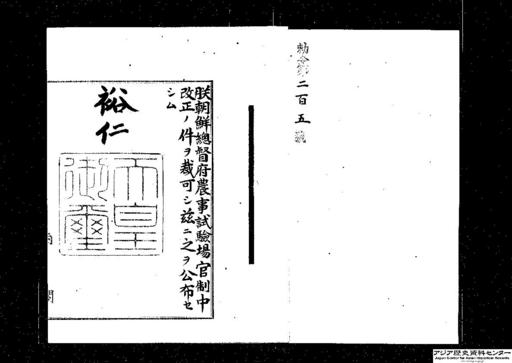 勅令第二百五號
朕朝鮮總督府農事試驗場官制中
改正ノ件ヲ裁可シ茲ニ之ヲ公布セ
シム
裕仁
天皇
御璽
内閣
アジア歴史資料センター
Japan Center for Asian Historical Records